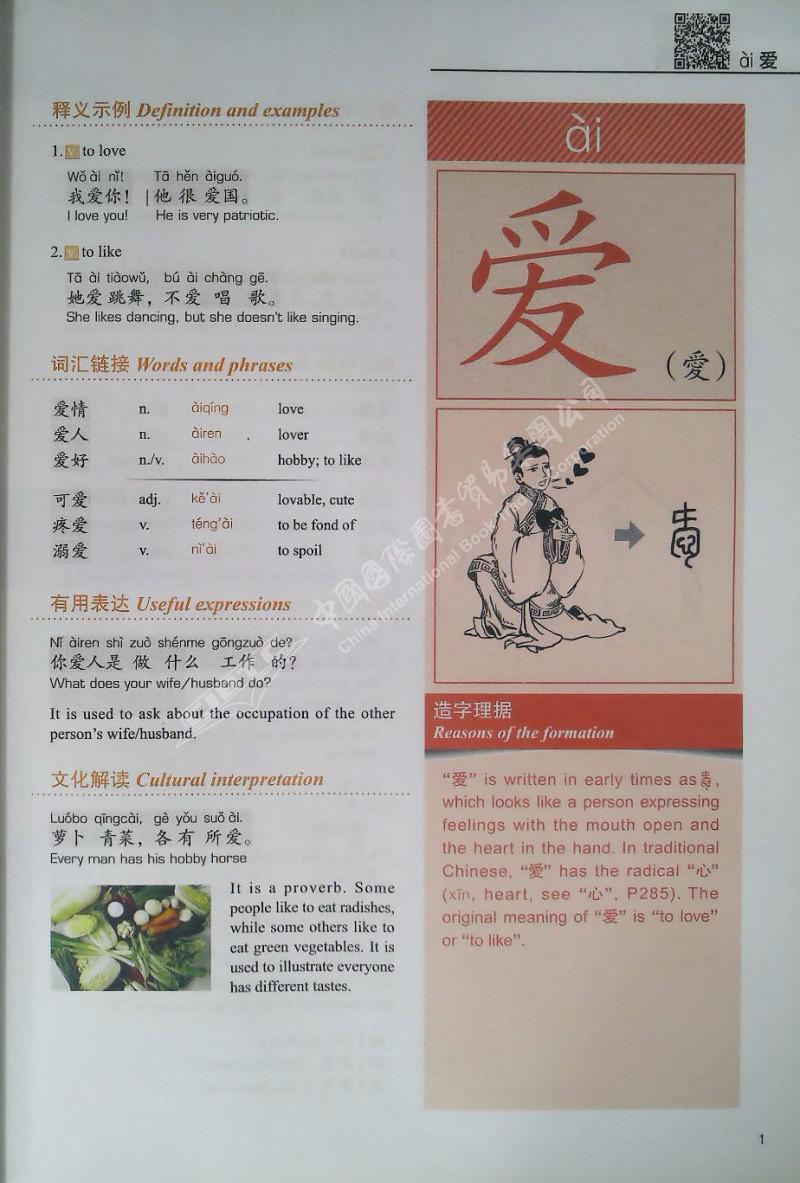 ài 爱
释义示例 Definition and examples
1. v. to love
Wǒ ài nǐ! Tā hěn àiguó.
我爱你！ | 他 很 爱国。
I love you! He is very patriotic.
2. v. to like
Tā ài tiàowǔ, bú ài chàng gē.
她爱 跳舞，不爱 唱 歌。
She likes dancing, but she doesn't like singing.
词汇链接 Words and phrases
爱情 n. àiqíng love
爱人 n. àiren lover
爱好 n./v. àihào hobby; to like
可爱 adj. kě'ài lovable, cute
疼爱 v. téng'ài to be fond of
溺爱 v. nì'ài to spoil
有用表达 Useful expressions
Nǐ àiren shì zuò shénme gōngzuò de?
你爱人是 做 什么 工作 的?
What does your wife/husband do?
It is used to ask about the occupation of the other
person's wife/husband.
文化解读 Cultural interpretation
Luóbo qīngcài, gè yǒu suǒ ài.
萝卜 青菜，各有 所爱。
Every man has his hobby horse
It is a proverb. Some
people like to eat radishes,
while some others like to
eat green vegetables. It is
used to illustrate everyone
has different tastes.
ài
爱
(愛)
造字理据
Reasons of the formation
"爱" is written in early times as ,
which looks like a person expressing
feelings with the mouth open and
the heart in the hand. In traditional
Chinese, "爱" has the radical "心"
(xīn, heart, see "心", P285). The
original meaning of "爱" is "to love"
or "to like".
中國國際圖書貿易集團公司
China International Book Trading Corporation
1